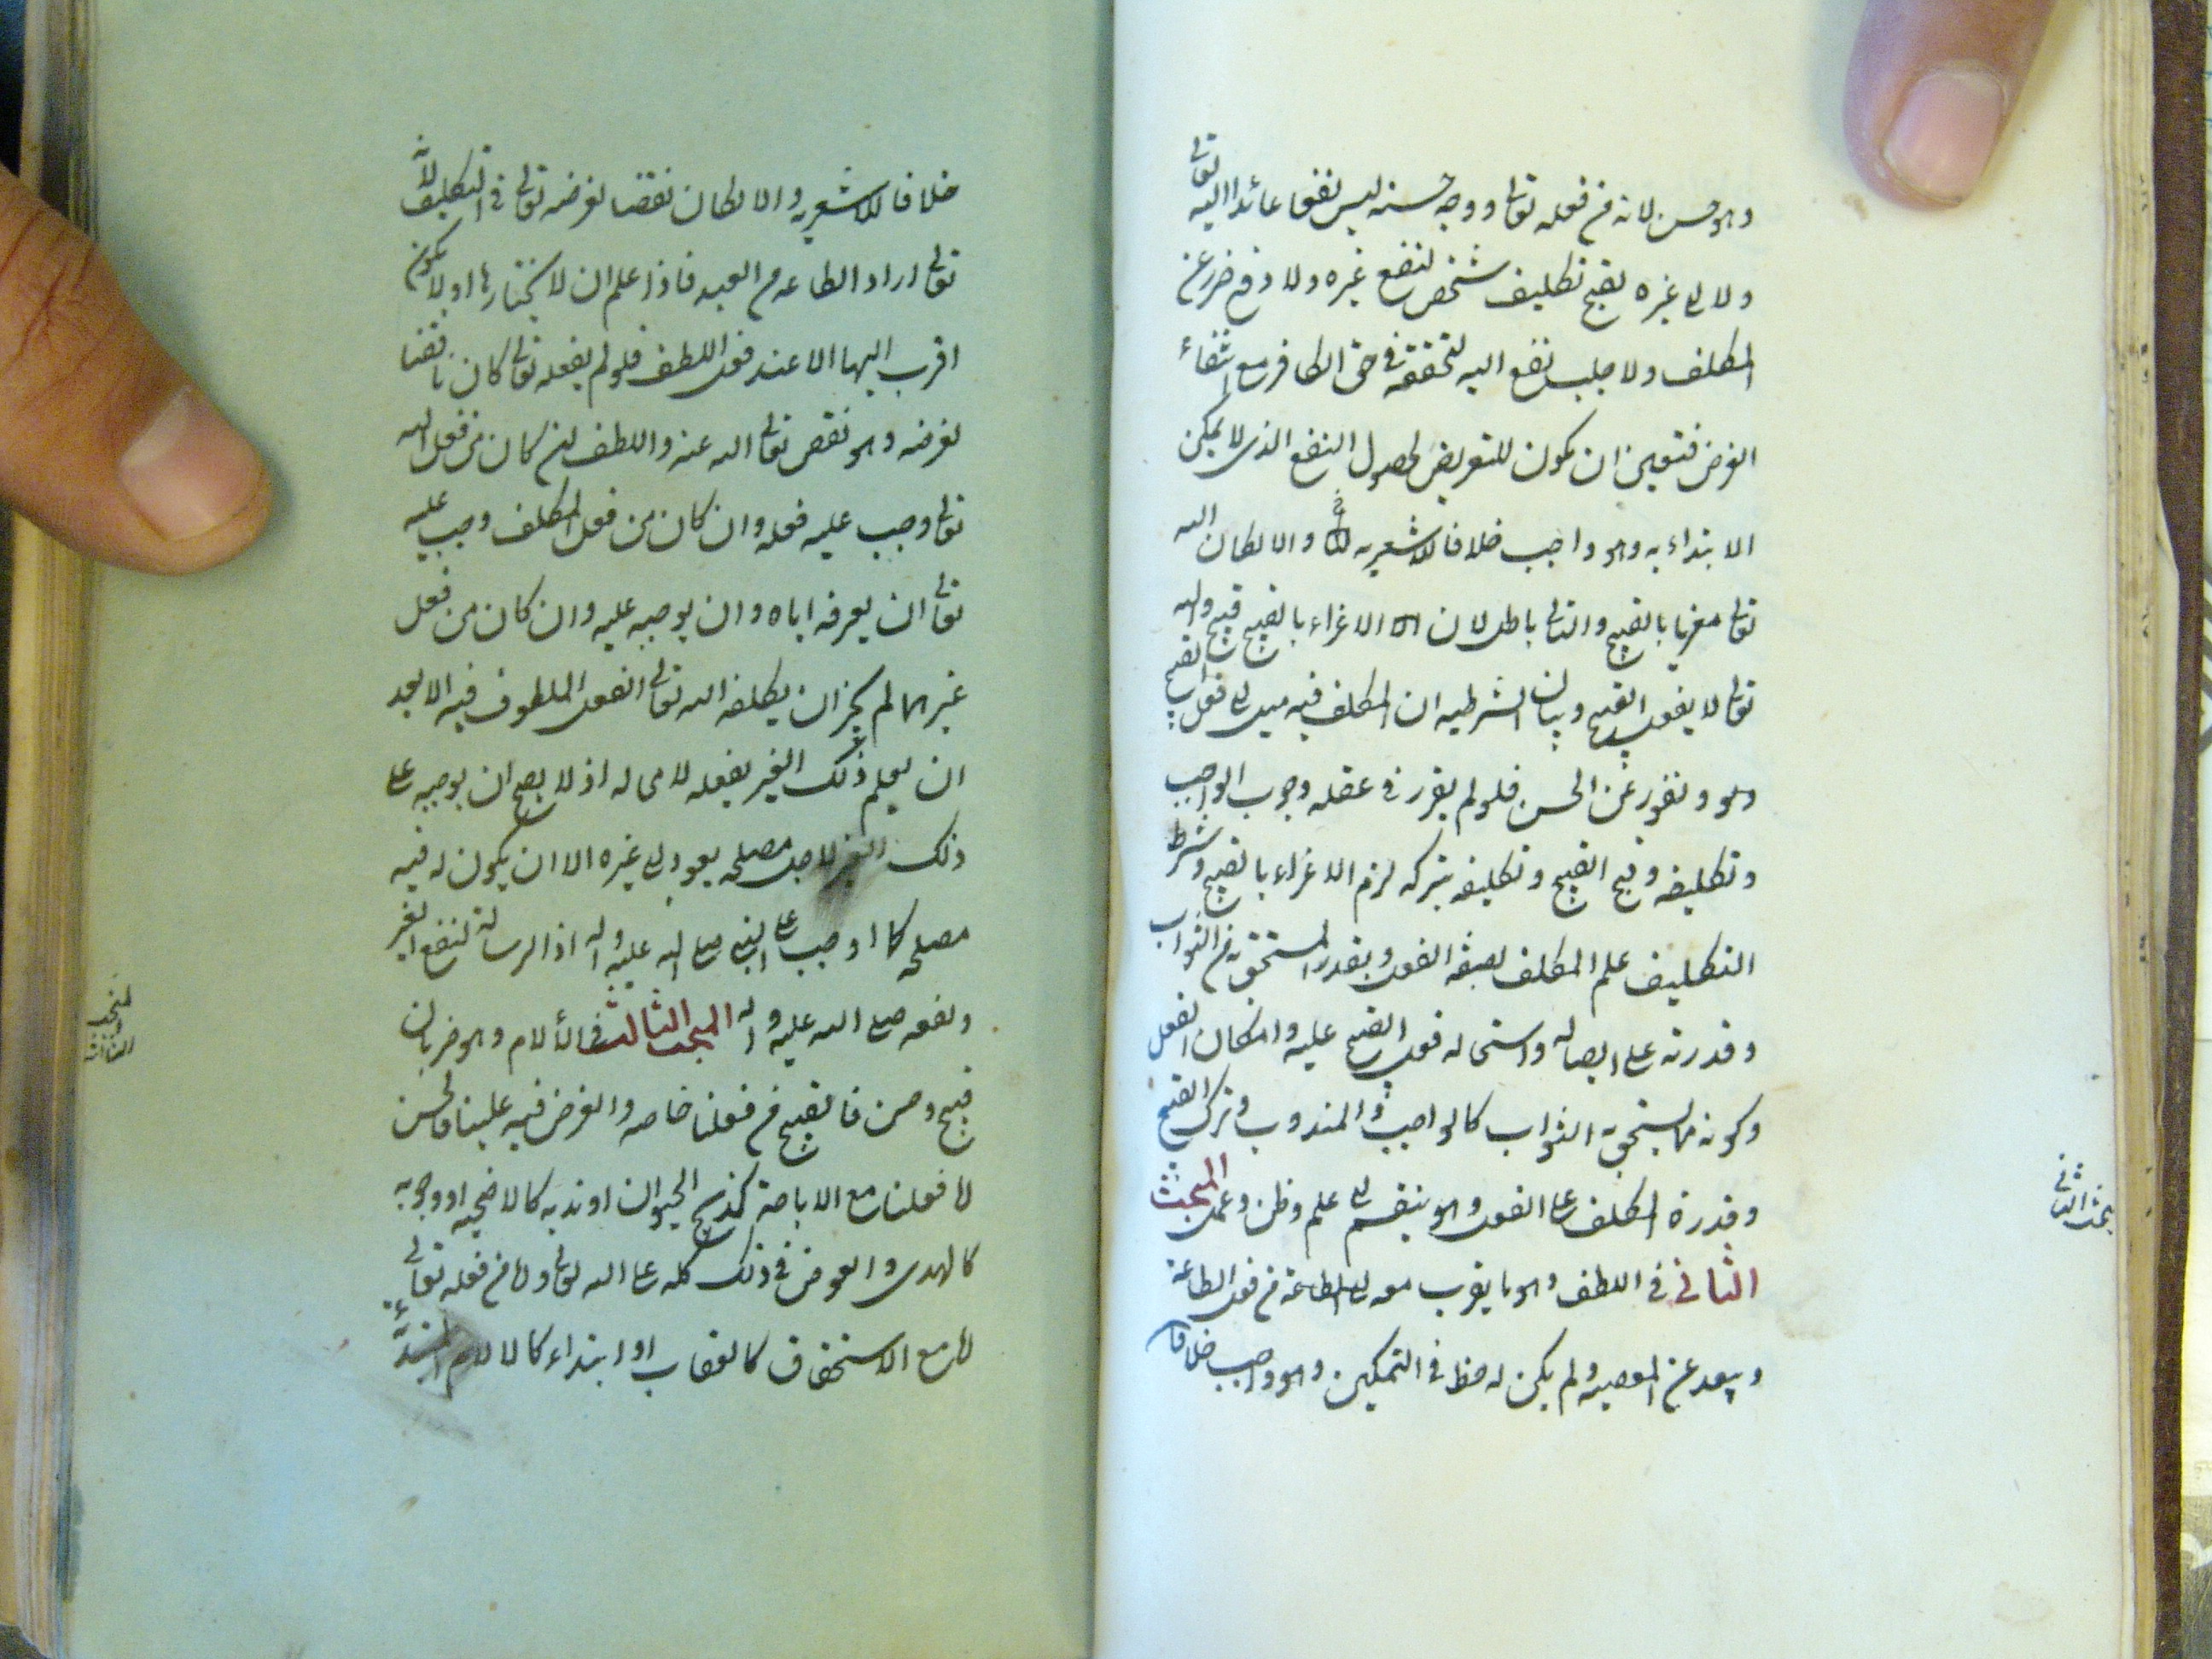 وهو حسن لانه من فعله تعالى ووجه حسنه ليس نفعا عائدا اليه تعالى
ولا الى غيره لقبح تكليف شخص لنفع غيره ولا دفع ضرر عن
المكلف ولا جلب نفع اليه لتحققه في حق الكافر مع انتفاء
الغرض فتعين ان يكون للتعريض لحصول النفع الذي لا يمكن
الابتداء به وهو واجب خلافا للاشعريه والا لكان الله
تعالى مغريا بالقبيح والتالي باطل لان الاغراء بالقبيح قبيح والله
تعالى لا يفعل القبيح وبيان الشرطيه ان المكلف فيه ميل الى فعل القبيح
وهو ونفور عن الحسن فلو لم يقرر في عقله وجوب الواجب
وتكليفه وقبح القبيح وتكليفه بتركه لزم الاغراء بالقبيح وشرط
التكليف علم المكلف بصفة الفعل وبقدر المستحق به من الثواب
وقدرته على ايصاله واستحاله فعل القبيح عليه وامكان الفعل
وكونه مما يستحق به الثواب كالواجب والمندوب وترك القبيح
وقدرة المكلف على الفعل وهو ينقسم الى علم وظن وعمل المبحث
الثاني في اللطف وهو ما يقرب معه الى الطاعة من فعل الطاعة
ويبعد عن المعصيه ولم يكن له حظ في التمكين وهو واجب خلافا
بحث الثاني
خلافا للاشعريه والا لكان نقضا لغرضه تعالى في التكليف لانه
تعالى اراد الطاعه من العبد فاذا علم ان لا يختارها او لا يكون
اقرب اليها الا عند فعل اللطف فلو لم يفعله تعالى كان ناقضا
لغرضه وهو نقص تعالى الله عنه واللطف ان كان من فعل الله
تعالى وجب عليه فعله وان كان من فعل المكلف وجب عليه
تعالى ان يعرفه اياه وان يوجبه عليه وان كان من فعل
غيرهما لم يجز ان يكلفه الله تعالى الفعل الملطوف فيه الا بعد
ان يعلم ذلك الغير يفعله لا محاله اذ لا يصح ان يوجبه على
ذلك الغير لاجل مصلحه يعود الى غيره الا ان يكون له فيه
مصلحه كما اوجب على النبي صلى الله عليه واله اذا الرسالة لنفع الغير
ونفعه صلى الله عليه واله المبحث الثالث في الألام وهو ضربان
قبيح وحسن فالقبيح من فعلنا خاصه والعوض فيه علينا والحسن
اما فعلنا مع الاباحة كذبح الحيوان او ندبه كالاضحيه او وجوبه
كالهدى والعوض في ذلك كله على الله تعالى واما من فعله تعالى
اما مع الاستحقاق كالعقاب او ابتداء كالالام المبتدأة
المبحث الثالث